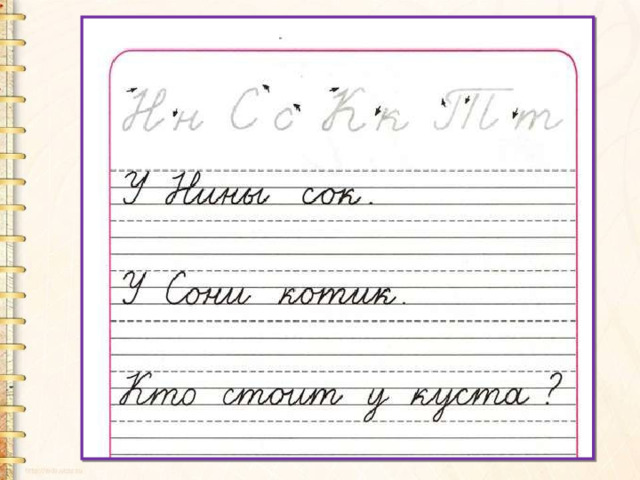 Нн Сс Кк Тт
У Нины сок.
У Сони котик.
Кто стоит у куста?